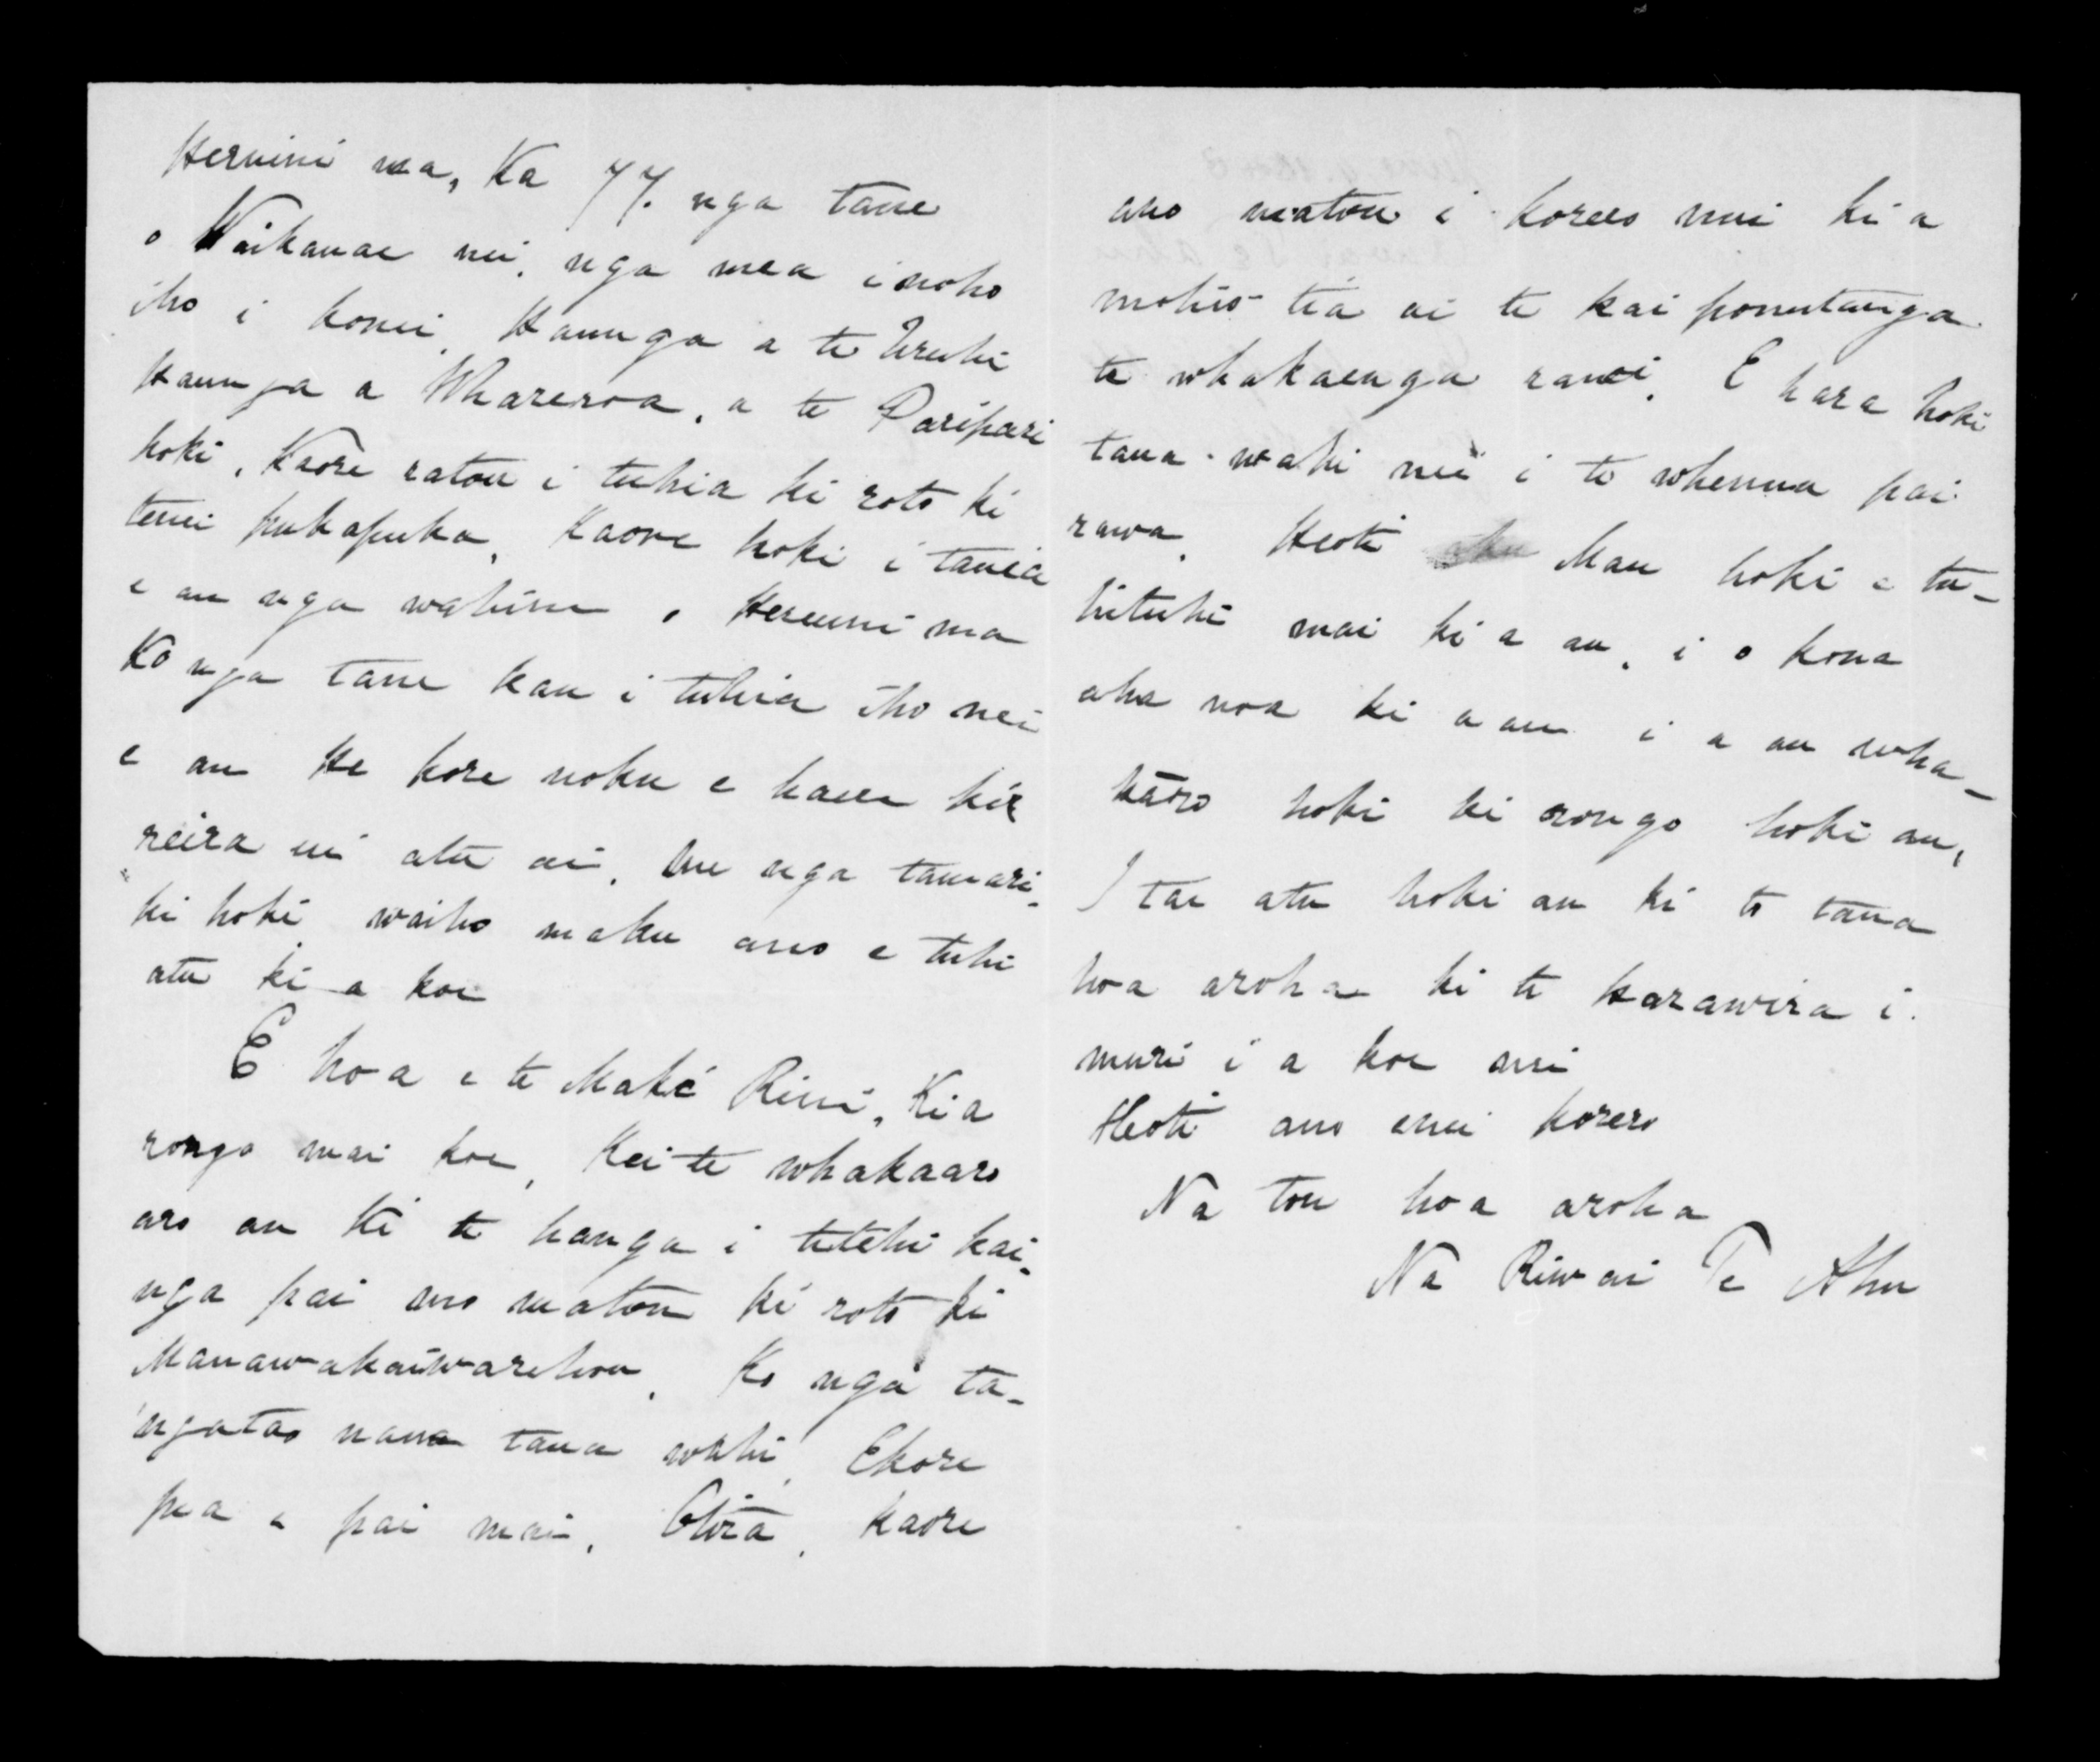 Heruini ma, Ka 77. nga tane
o Waikanae nei, nga mea i noho
iho i konei, Haunga a te Uruhi
Haunga a Whareroa, a te Paripari
hoki, Kaore ratou i tuhia ki roto ki
tenei pukapuka, Kaore hoki i taueia
e au nga wahine o Heruini ma
Ko nga tane kau i tuhia iho nei
e au He kore noku e kaua kia
reira ui atu ai, me nga tamari-
ki hoki waiho maku ano e tuhi
atu ki a koe
E hoa e te Maka Rini, Kia
rongo mai koe, Kei te whakaaro
aro au ki te hanga i tetehi kai-
nga pai mo matou ki roto ki
Manawakaiwarehou, Ko nga ta-
ngatao nana taua wahi, Ekore
pea e pai mai, Otira, kaore
ano matou i korero nui kia
mohio-tia ai te kai ponutanga
te whakaenga ranei, E hara hoki
taua wahi nei i te whenua pai
rawa, Heoti Mau hoki e tu-
hituhi mai ki a au, i o kona
aha noa ki a au i a au wha-
karo hoki ki rongo hoki au,
I tae atu hoki au ki to taua
hoa aroha ki te Harawira i
muri i a koe nei
Heoti ano enei korero
Na tou hoa aroha
Na Riwai Te Ahu